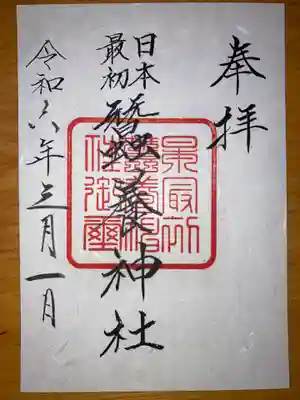 奉拝
日本
最初
蠶養神社
令和六年三月一日